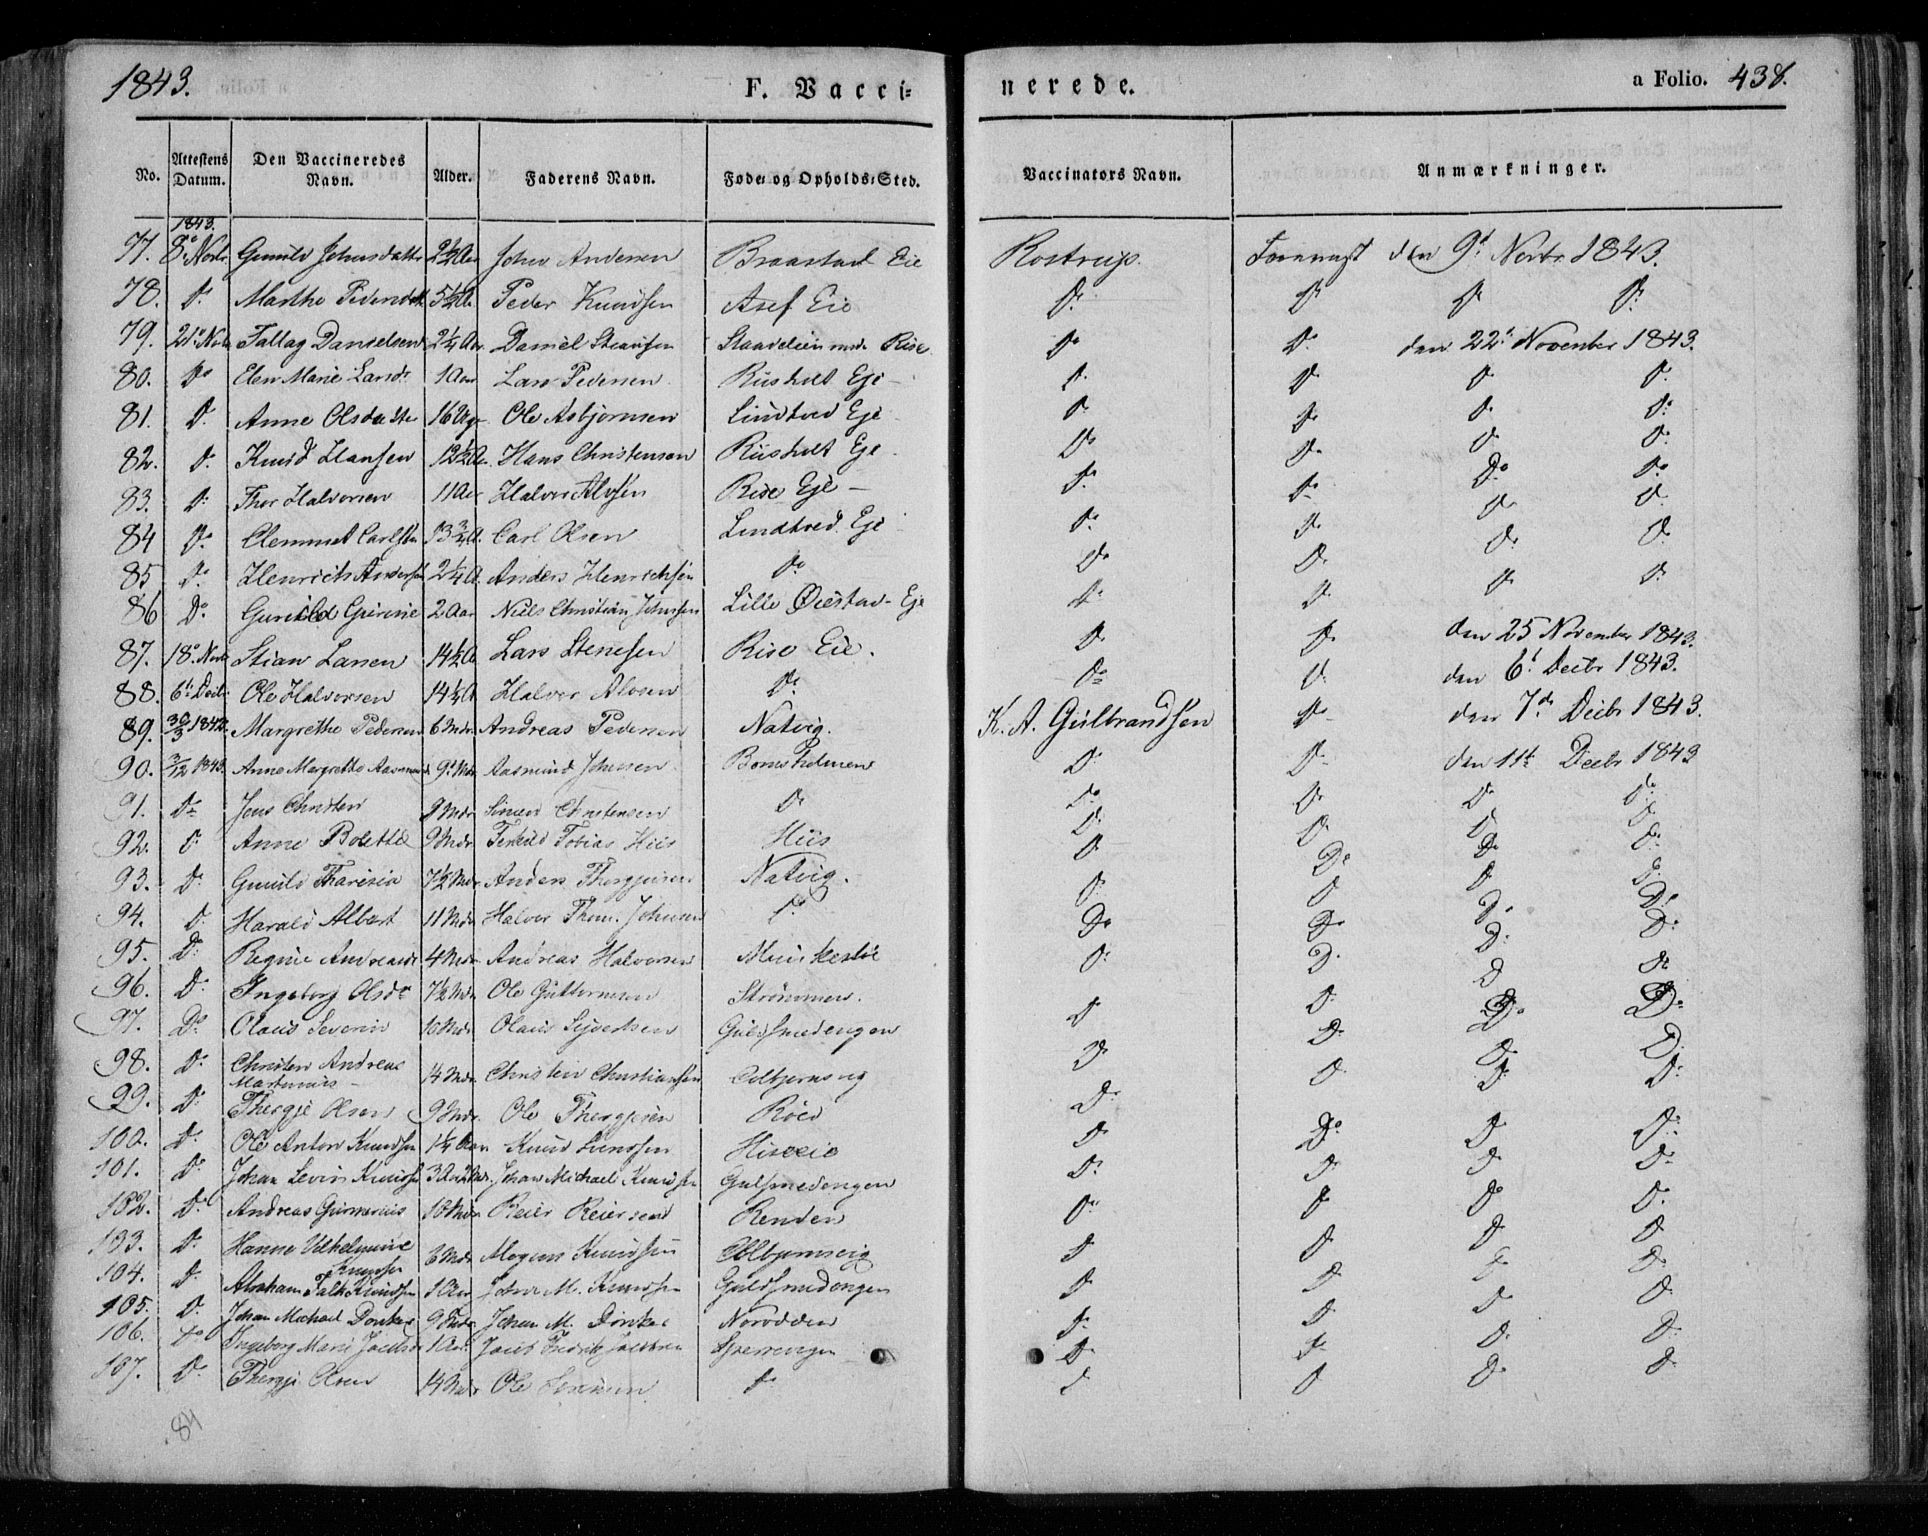 1843. F. Vacci= nerede. a Folio. 438.
No. Attestens Datum. Den Vaccineredes Navn. Alder. Faderens Navn. Føde= og Opholds=Sted. Vaccinators Navn. Anmærkninger.
1843.
77. 8de Novbr Gunild Johnsdatter 2½ Aar John Andersen Braastad Eie Rostrup. Foreviist den 9d Novbr 1843.
78. Do Marthe Pedersdtr 5½ A. Peder Knudsen Asef Eie Do Do Do Do
79. 21de Novbr Tallag Danielsen 2¼ Aar Daniel Steansen Rise Do Do den 22d November 1843.
80. Do Elen Marie Larsdr 1 Aar Lars Pedersen Riisholt Eje Do Do Do Do
81. Do Anne Olsdatter 16 Uger Ole Asbjørnsen Lindtved Eje Do Do Do Do
82. Do Knud Hansen 12½ A. Hans Christensen Riisholt Eje Do Do Do Do
83. Do Thor Halvorsen 11 Aar Halvor Alvsen Rise Eje Do Do Do Do
84 Do Clemmet Carlsen 13 A. Carl Olsen Lindtved Eje Do Do Do Do
85 Do Henrich Andersen 2¼ A. Anders Henrichsen Do Do Do Do Do
86 Do Gunild Gurine 2 Aar Niels Christian Johnsen Lille Øiestad Eje Do Do Do Do
87. 18de Novbr Stian Larsen 14½ A Lars Stensen Rise Eie. Do Do den 25 November 1843.
88. 6te Decbr Ole Halvorsen 14½ A Halvor Alvsen Do Do Do den 6d Decbr 1843.
89. 30/3 1842. Margrethe Pedersen 6 Mdr. Andreas Pedersen Natvig. K. A. Gulbrandsen Do den 7de Decbr 1843.
90. 3/12 1843. Anne Margrethe Aasmunds 9 Mdr Aasmund Johnsen Bomsholmen Do Do den 11te Decbr 1843
91. Do Jens Christen 9 Mdr Simen Christensen Do Do Do Do Do
92. Do Anne Bolette 9 Mdr Terkild Tobias Hiis Hiis Do Do Do Do
93. Do Gunild Tharisia 7½ Mdr Anders Thergjersen Natvig. Do Do Do Do
94. Do Harald Albert 11 Mdr Halvor Thom. Johnsen Do Do Do Do Do
95. Do Regine Andreasdr 4 Mdr Andreas Halvorsen Do Do Do Do
96. Do Ingeborg Olsdr 7½ Mdr. Ole Guttormsen Strømmen. Do Do Do Do
97. Do Olaus Severin 10 Mdr Olaus Sivertsen Guldsmedengen Do Do Do Do
98. Do Christen Andreas
Martinius 14 Mdr. Christen Christiansen Colbjørnsvig Do Do Do Do
99. Do Thergje Olsen 9 Mdr. Ole Thergjesen Røed Do Do Do Do
100. Do Ole Anton Knudsen 1½ Aar Knud Svendsen Hiseeie Do Do Do Do
101. Do Johan Levin Knudsen Johan Michael Knudsen Gulsmedengen Do Do Do Do
102. Do Andreas Gunnerius 10 Mdr Reier Reiersen Renden Do Do Do Do
103. Do Hanne Vilhelmine
Knudsen 6 Mdr Mogens Knudsen Colbjørnsvig Do Do Do Do
104. Do Abraham Falk Knudsen 1 Aar Johan M. Knudsen Guldsmedengen Do Do Do Do
105. Do Johan Michael Dønke 9 Mdr Johan M. Dønke Norodden Do Do Do Do
106. Do Ingeborg Marie Jacobsdr 1 Aar Jacob Fredrik Jacobsen Do Do Do Do
107. Do Thergje Olsen 14 Mdr Ole Do Do Do Do Do
84